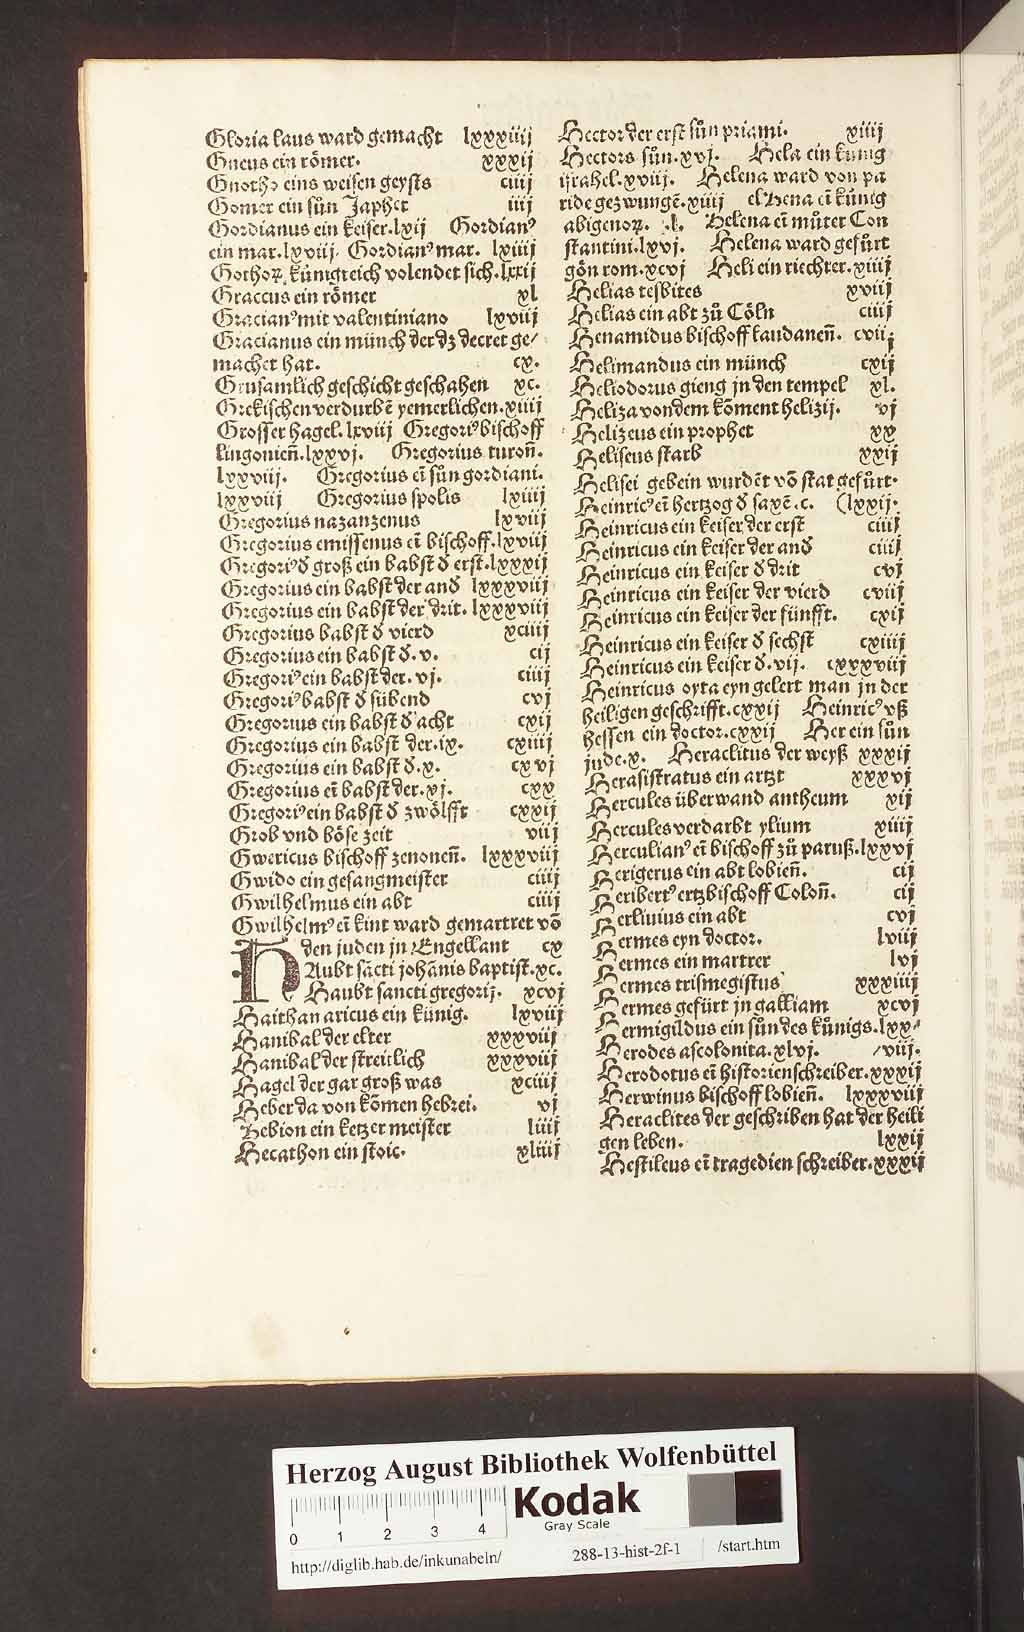 Gloria laus ward gemacht lxxxiiij
Gneus ein römer. xxxij
Gnotho eins weisen geysts ciiij
Gomer ein sůn Japhet iiij
Gordianus ein keiser. lxij Gordianꝰ
ein mar. lxviij. Gordianꝰ mar. lxiiij
Gothoꝝ künigreich volendet sich. lxxij
Graccus ein römer xl
Gracianꝰ mit valentiniano lxviij
Gracianus ein münch der dz decret ge⸗
machet hat. cx.
Grusamlich geschicht geschahen xc.
Grekischen verdurbē yemerlichen. xiiij
Grosser hagel. lxviij Gregoriꝰ bischoff
lingonien̄. lxxvj. Gregorius turon̄.
lxxviij. Gregorius eī sůn gordiani.
lxxviij Gregorius spolis lxiiij
Gregorius nazanzenus lxviij
Gregorius emissenus eī bischoff. lxviij
Gregoriꝰ d̕ groß ein babst d̕ erst. lxxxij
Gregorius ein babst der and̕ lxxxviij
Gregorius ein babst der drit. lxxxviij
Gregorius babst d̕ vierd xciiij
Gregorius ein babst d̕. v. cij
Gregoriꝰ ein babst der. vj. ciiij
Gregoriꝰ babst d̕ sübend cvj
Gregorius ein babst d̕ acht cxij
Gregorius ein babst der. ix. cxiiij
Gregorius ein babst d̕. x. cxvj
Gregorius eī babst der. xj. cxx
Gregoriꝰ ein babst d̕ zwölfft cxxij
Grob vnd böse zeit viij
Gwericus bischoff zenonen̄. lxxxviij
Gwido ein gesangmeister ciiij
Gwilhelmus ein abt ciiij
Gwilhelmꝰ eī kint ward gemartret vō
den juden jn Engellant cx
HAubt sācti johānis baptist. xc.
Haubt sancti gregorij. xcvj
Haithan aricus ein künig. lxviij
Hanibal der elter xxxviij
Hanibal der streitlich xxxviij
Hagel der gar groß was xciiij
Heber da von kōmen hebrei. vj
Hebion ein ketzer meister liiij
Hecathon ein stoic. xliiij
Hector der erst sůn priami. xiiij
Hectors sůn. xvj. Hela ein künig
israhel. xviij. Helena ward von pa
ride gezwungē. xiiij elhena eī künig
abigenoꝝ. .l. Helena eī můter Con
stantini. lxvj. Helena ward gefürt
gön rom. xcvj Heli ein riechter. xiiij
Helias tesbites xviij
Helias ein abt zů Cöln ciiij
Henamidus bischoff laudanen̄. cvij
Helimandus ein münch cxij
Heliodorus gieng jn den tempel xl.
Heliza von dem kōment helizij. vj
Helizeus ein prophet xx
Heliseus starb xxij
Helisei gebein wurdēt vō stat gefürt.
Heinricꝰ eī hertzog d̕ saxē. c. (lxxij.
Heinricus ein keiser der erst ciiij
Heinricus ein keiser der and̕ ciiij
Heinricus ein keiser d̕ drit cvj
Heinricus ein keiser der vierd cviij
Heinricus ein keiser der fünfft. cxij
Heinricus ein keiser d̕ sechst cxiiij
Heinricus ein keiser d̕. vij. cxxxviij
Heinricus oyta eyn gelert man jn der
heiligen geschrifft. cxxij Heinricꝰ vß
hessen ein doctor. cxxij Her ein sůn
jude. x. Heraclitus der weyß xxxij
Herasistratus ein artzt xxxvj
Hercules überwand antheum xij
Hercules verdarbt ylium xiiij
Herculianꝰ eī bischoff zů paruß. lxxvj
Herigerus ein abt lobien̄. cij
Heribertꝰ ertzbischoff Colon̄. cij
Herliuius ein abt cvj
Hermes eyn doctor. lviij
Hermes ein martrer lvj
Hermes trismegistus xxxiiij
Hermes gefürt jn galliam xcvj
Hermigildus ein sůn des künigs. lxx⸗
Herodes ascolonita. xlvj. ⸗viij.
Herodotus eī historienschreiber. xxxij
Herwinus bischoff lobien̄. lxxxviij
Heraclites der geschriben hat der heili
gen leben. lxxij
Hestileus eī tragedien schreiber. xxxij
Herzog August Bibliothek Wolfenbüttel
Kodak
Gray Scale
0 1 2 3 4
http://diglib.hab.de/inkunabeln/ 288-13-hist-2f-1 /start.htm